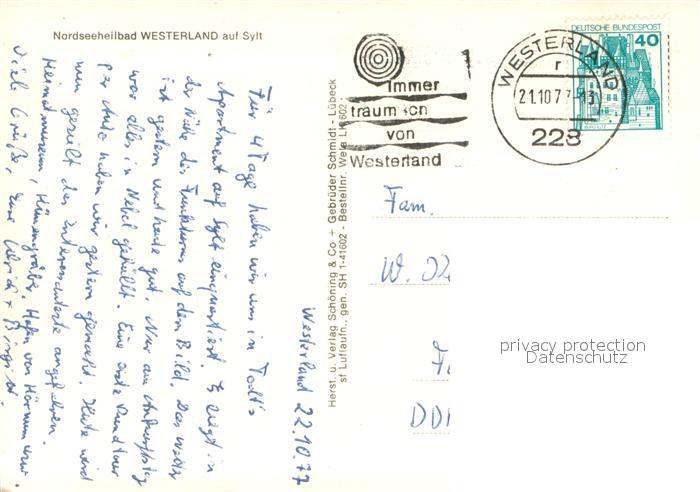 Nordseeheilbad WESTERLAND auf Sylt
Westerland 22.10.77
Für 4 Tage haben wir uns in Todt's
Apartment auf Sylt einquartiert. Es liegt in
der Nähe des Funkturms auf dem Bild. Das Wetter
ist gestern und heute gut. Nur am Ankunftstag
war alles in Nebel gehüllt. Eine erste Rundtour
per Auto haben wir gestern gemacht. Heute wird
nun gezielt das Interessanteste angefahren.
Heimatmuseum, Hünengräber, Hafen von Hörnum usw.
Viele Grüße, Eure Ulrich + Birgit.
Herst. u. Verlag Schöning & Co + Gebrüder Schmidt - Lübeck
sf Luftaufn., gen. SH 1-41602 - Bestellnr. Weste LH 602
Immer
träum ich
von
Westerland
WESTERLAND
r
21.10.77-13
228
DEUTSCHE BUNDESPOST
40
Fam.
W. 
DDR
privacy protection
Datenschutz